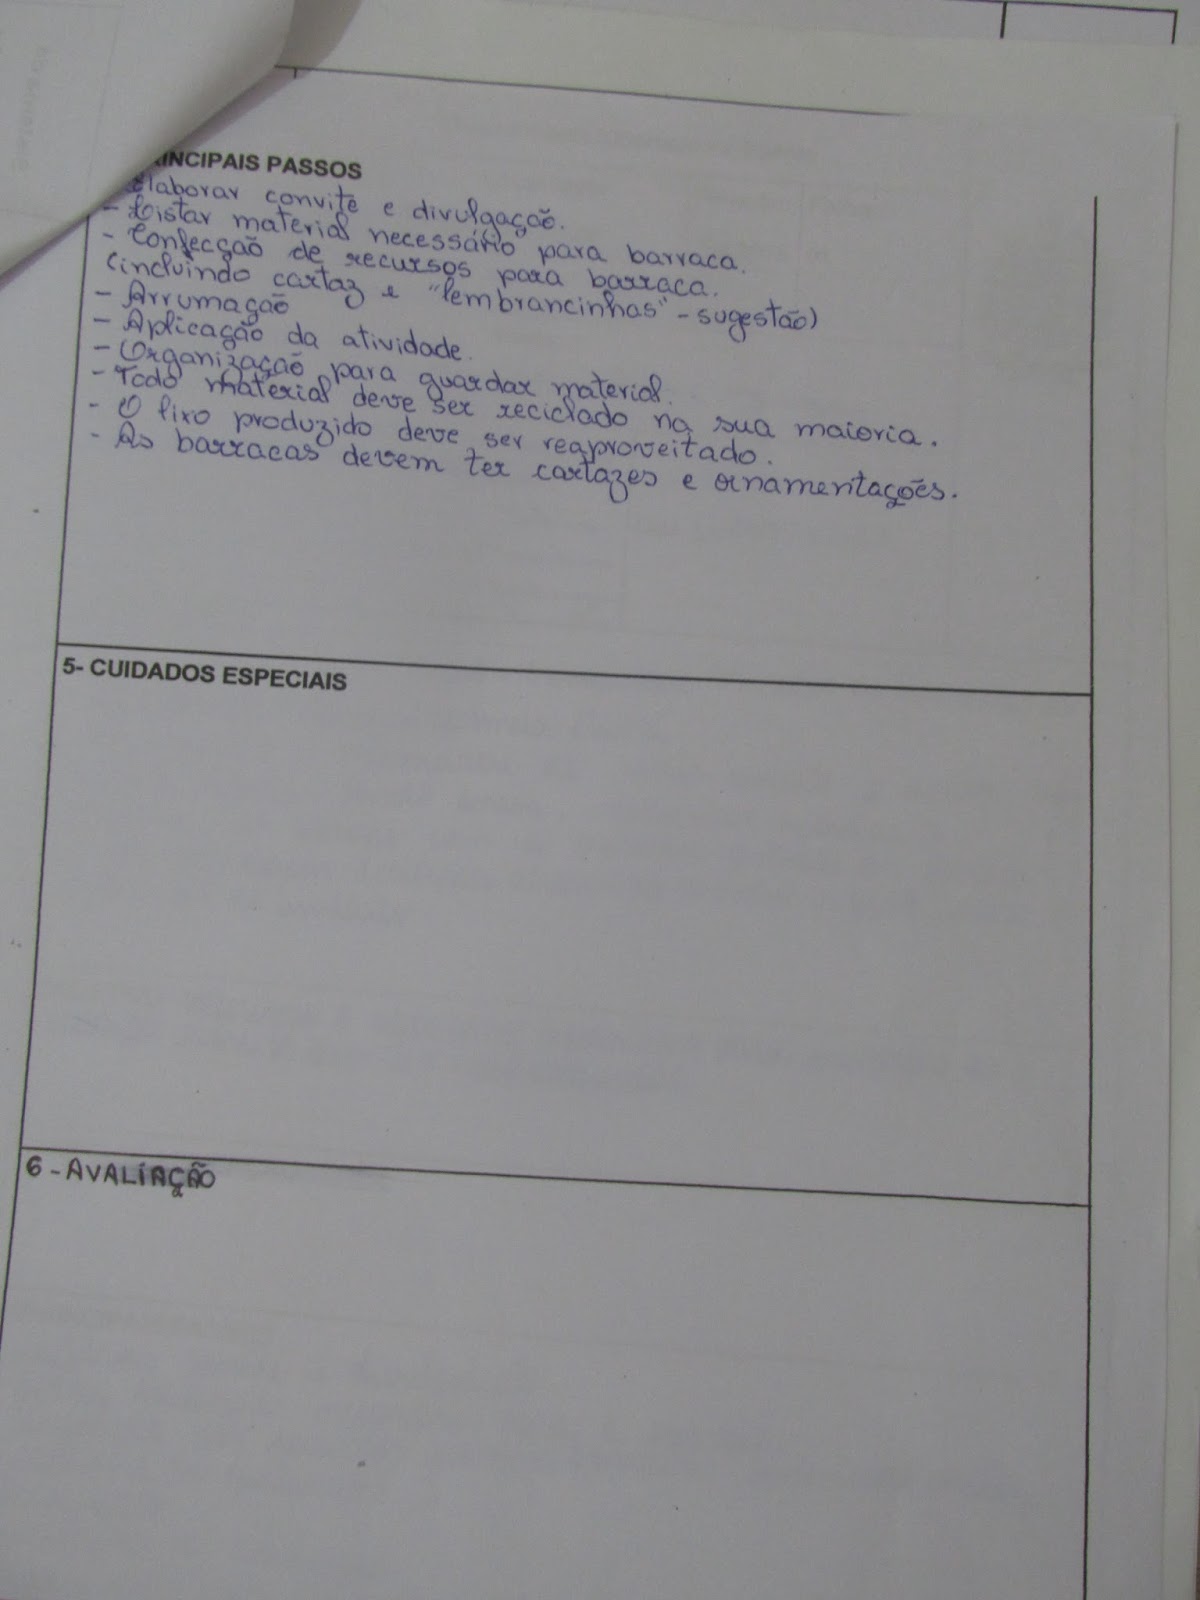 RINCIPAIS PASSOS
Elaborar convite e divulgação.
- Listar material necessário para barraca.
- Confecção de recursos para barraca.
(incluindo cartaz e "lembrancinhas" - sugestão)
- Arrumação
- Aplicação da atividade.
- Organização para guardar material.
- Todo material deve ser reciclado na sua maioria.
- O lixo produzido deve ser reaproveitado.
- As barracas devem ter cartazes e ornamentações.
5- CUIDADOS ESPECIAIS
6 - AVALIAÇÃO